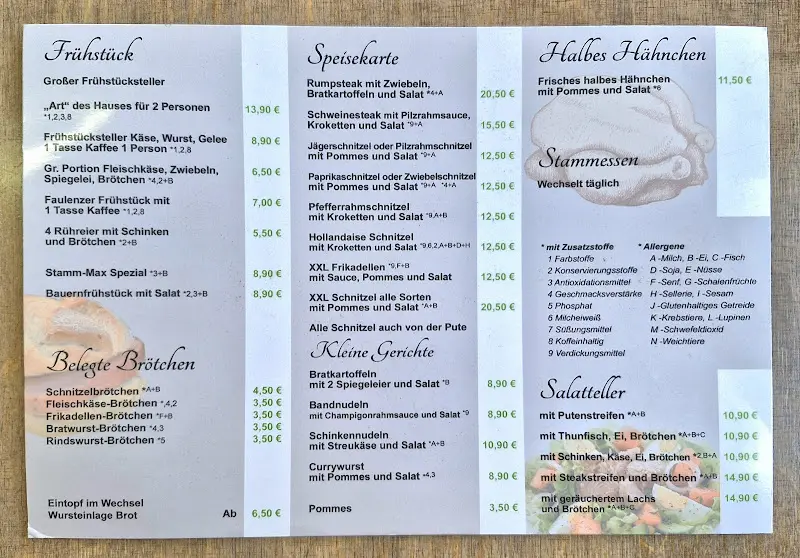 Frühstück
Großer Frühstücksteller
„Art“ des Hauses für 2 Personen 13,90 €
*1,2,3,8
Frühstücksteller Käse, Wurst, Gelee 8,90 €
1 Tasse Kaffee 1 Person *1,2,8
Gr. Portion Fleischkäse, Zwiebeln, 6,50 €
Spiegelei, Brötchen *4,2+B
Faulenzer Frühstück mit 7,00 €
1 Tasse Kaffee *1,2,8
4 Rühreier mit Schinken 5,50 €
und Brötchen *2+B
Stamm-Max Spezial *3+B 8,90 €
Bauernfrühstück mit Salat *2,3+B 8,90 €
Belegte Brötchen
Schnitzelbrötchen *A+B 4,50 €
Fleischkäse-Brötchen *,4,2 3,50 €
Frikadellen-Brötchen *F+B 3,50 €
Bratwurst-Brötchen *4,3 3,50 €
Rindswurst-Brötchen *5 3,50 €
Eintopf im Wechsel
Wursteinlage Brot Ab 6,50 €
Speisekarte
Rumpsteak mit Zwiebeln,
Bratkartoffeln und Salat *4+A 20,50 €
Schweinesteak mit Pilzrahmsauce,
Kroketten und Salat *9+A 15,50 €
Jägerschnitzel oder Pilzrahmschnitzel
mit Pommes und Salat *9+A 12,50 €
Paprikaschnitzel oder Zwiebelschnitzel
mit Pommes und Salat *9+A *4+A 12,50 €
Pfefferrahmschnitzel
mit Kroketten und Salat *9,A+B 12,50 €
Hollandaise Schnitzel
mit Kroketten und Salat *9,6,2,A+B+D+H 12,50 €
XXL Frikadellen *9,F+B
mit Sauce, Pommes und Salat 12,50 €
XXL Schnitzel alle Sorten
mit Pommes und Salat *A+B 20,50 €
Alle Schnitzel auch von der Pute
Kleine Gerichte
Bratkartoffeln
mit 2 Spiegeleier und Salat *B 8,90 €
Bandnudeln
mit Champigonrahmsauce und Salat *9 8,90 €
Schinkennudeln
mit Streukäse und Salat *A+B 10,90 €
Currywurst
mit Pommes und Salat *4,3 8,90 €
Pommes 3,50 €
Halbes Hähnchen
Frisches halbes Hähnchen 11,50 €
mit Pommes und Salat *6
Stammessen
Wechselt täglich
* mit Zusatzstoffe * Allergene
1 Farbstoffe A -Milch, B -Ei, C -Fisch
2 Konservierungsstoffe D -Soja, E -Nüsse
3 Antioxidationsmittel F -Senf, G -Schalenfrüchte
4 Geschmacksverstärke H -Sellerie, I -Sesam
5 Phosphat J -Glutenhaltiges Getreide
6 Milcheiweiß K -Krebstiere, L -Lupinen
7 Süßungsmittel M -Schwefeldioxid
8 Koffeinhaltig N -Weichtiere
9 Verdickungsmittel
Salatteller
mit Putenstreifen *A+B 10,90 €
mit Thunfisch, Ei, Brötchen *A+B+C 10,90 €
mit Schinken, Käse, Ei, Brötchen *2,B+A 10,90 €
mit Steakstreifen und Brötchen *A+B 14,90 €
mit geräuchertem Lachs 14,90 €
und Brötchen *A+B+C